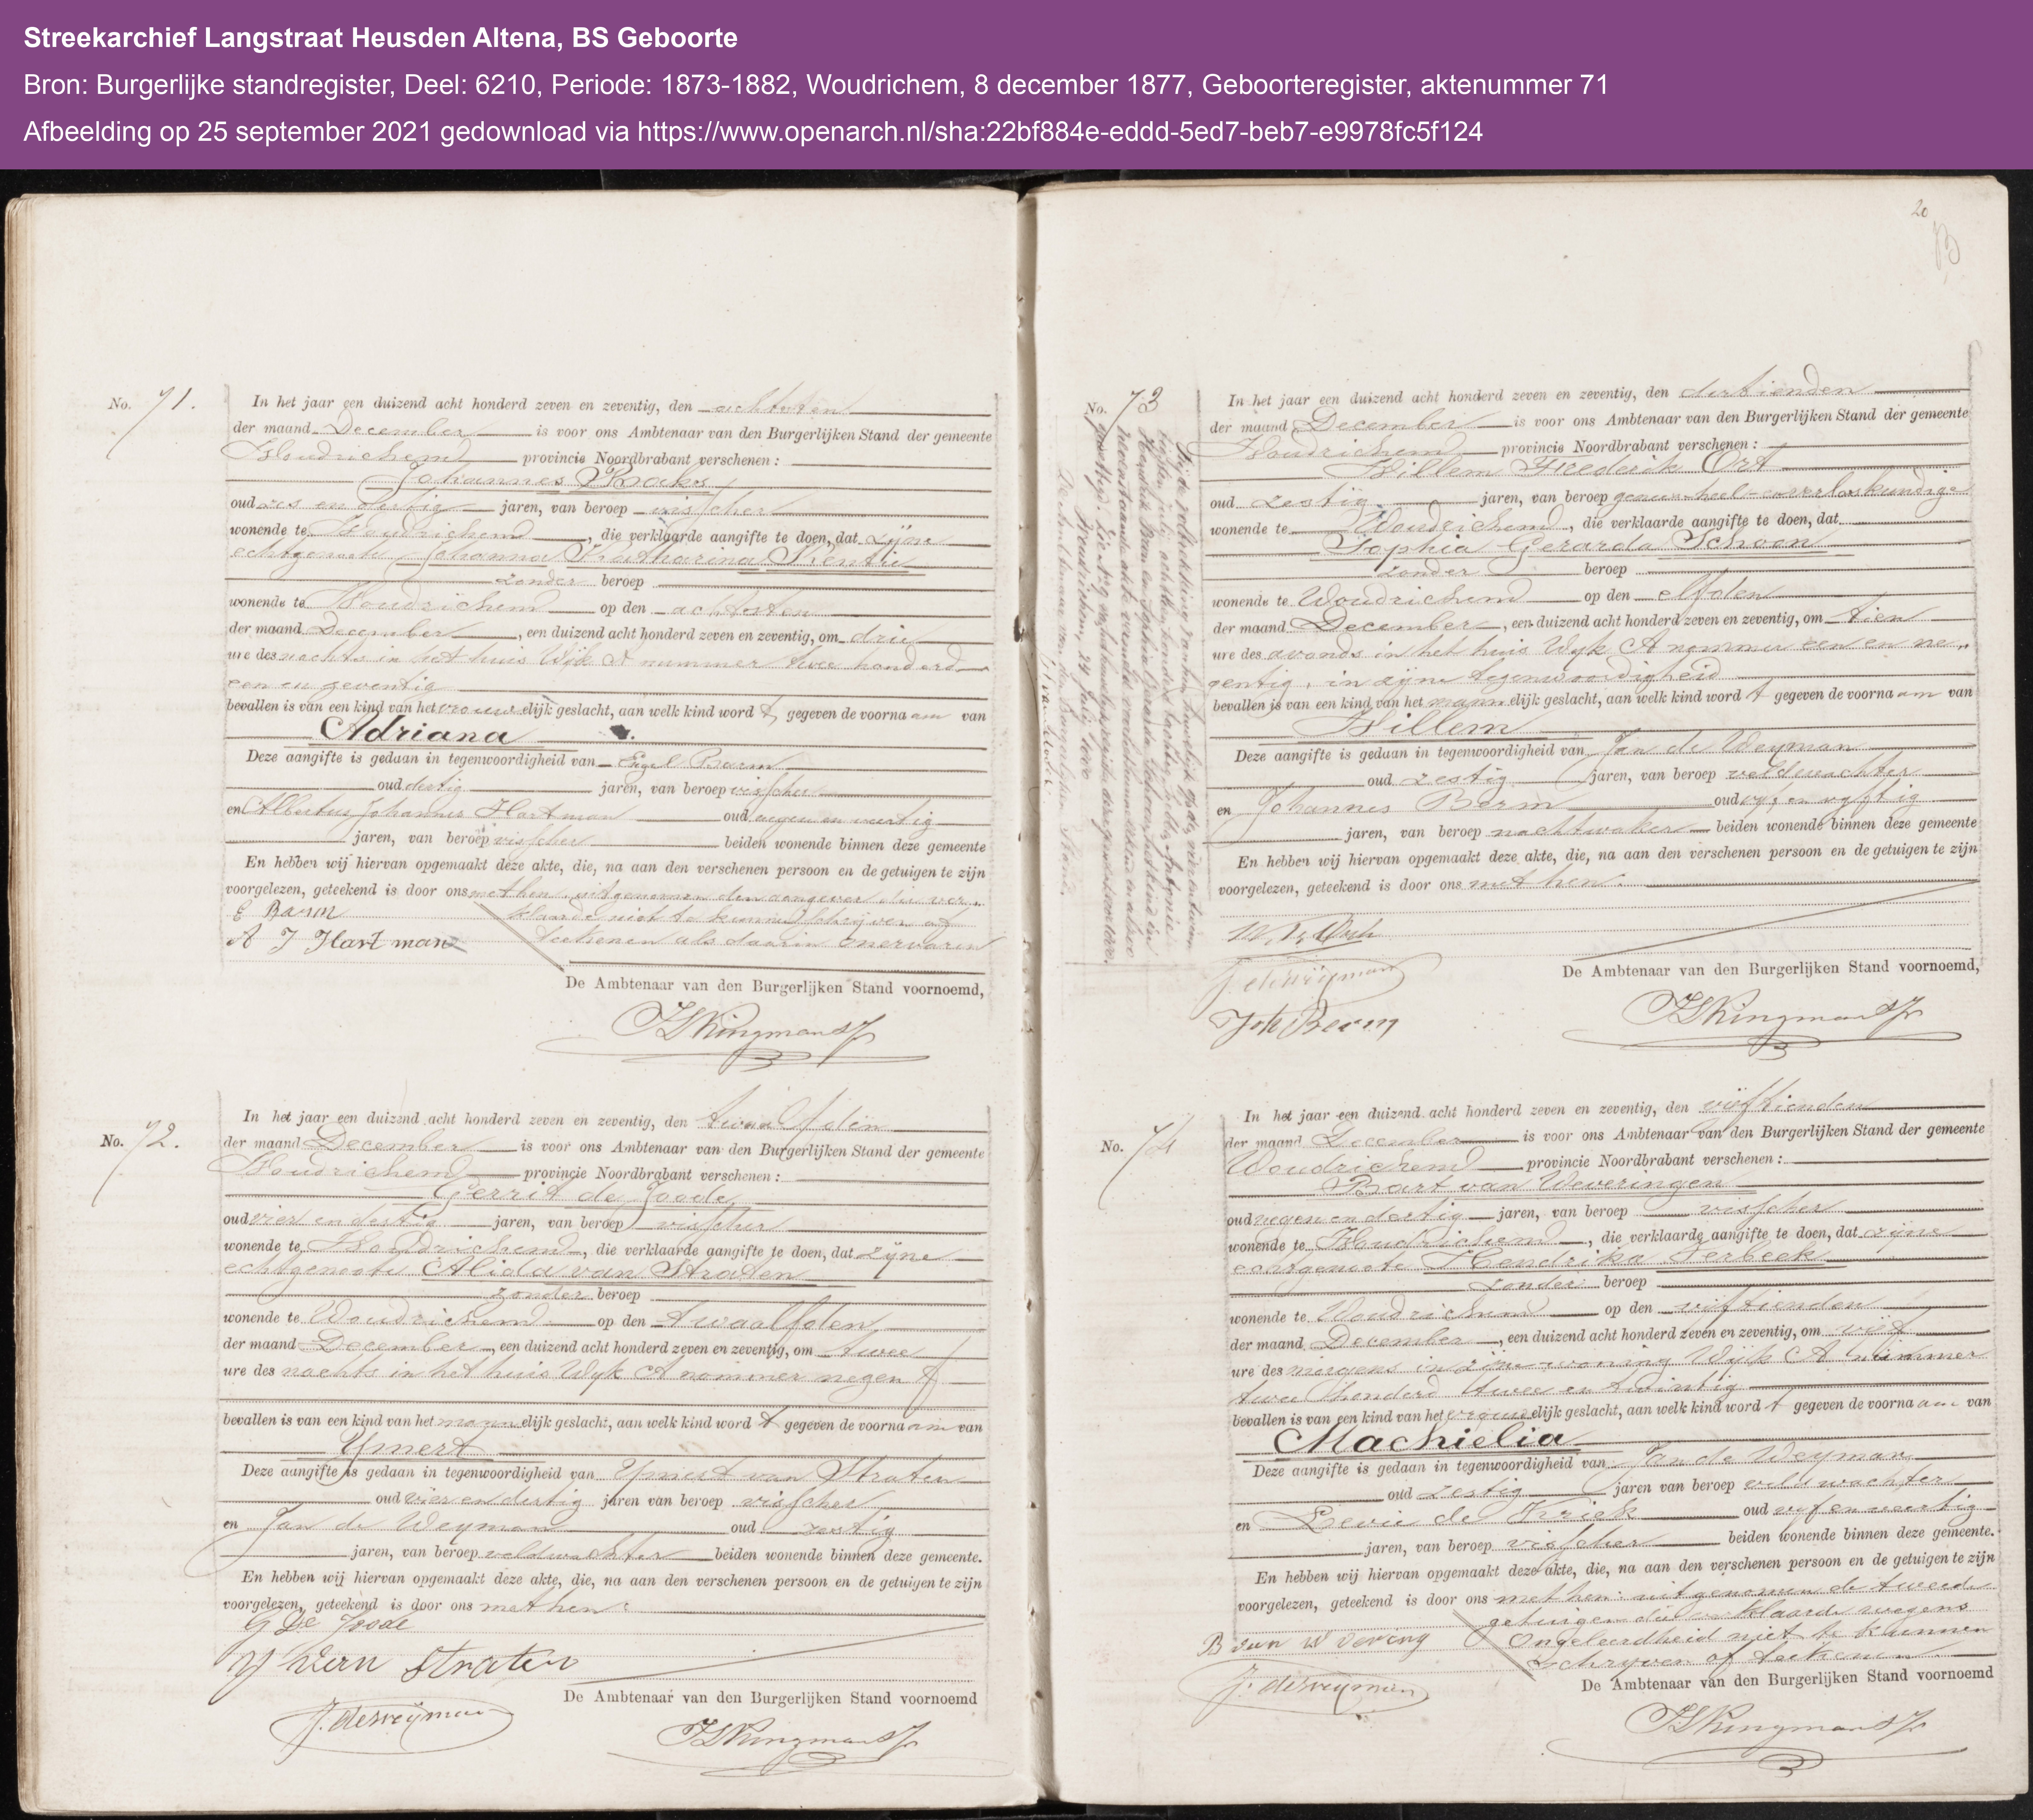 Streekarchief Langstraat Heusden Altena, BS Geboorte
Bron: Burgerlijke standregister, Deel: 6210, Periode: 1873-1882, Woudrichem, 8 december 1877, Geboorteregister, aktenummer 71
Afbeelding op 25 september 2021 gedownload via https://www.openarch.nl/sha:22bf884e-eddd-5ed7-beb7-e9978fc5f124
No. 71.
In het jaar een duizend acht honderd zeven en zeventig, den achtsten
der maand December is voor ons Ambtenaar van den Burgerlijken Stand der gemeente
Woudrichem provincie Noordbrabant verschenen:
Johannes
oud zes en dertig jaren, van beroep visscher
wonende te Woudrichem, die verklaarde aangifte te doen, dat zijne
echtgenoote Johanna Katharina
zonder beroep
wonende te Woudrichem op den achtsten
der maand December, een duizend acht honderd zeven en zeventig, om drie
ure des nachts in het huis Wijk A nummer twee honderd
een en zeventig
bevallen is van een kind van het vrouwelijk geslacht, aan welk kind wordt gegeven de voornaam van
Adriana
Deze aangifte is gedaan in tegenwoordigheid van Engel
oud dertig jaren, van beroep visscher
en Albertus Johannes Hartman oud negen en veertig
jaren, van beroep visscher beiden wonende binnen deze gemeente
En hebben wij hiervan opgemaakt deze akte, die, na aan den verschenen persoon en de getuigen te zijn
voorgelezen, geteekend is door ons met hen uitgenomen den aangever die ver-
klaarde niet te kunnen schrijven of
teekenen als daarin onervaren
A J Hartman
De Ambtenaar van den Burgerlijken Stand voornoemd,
No. 72.
In het jaar een duizend acht honderd zeven en zeventig, den twaalfden
der maand December is voor ons Ambtenaar van den Burgerlijken Stand der gemeente
Woudrichem provincie Noordbrabant verschenen:
Gerrit de Joode
oud vier en dertig jaren, van beroep visscher
wonende te Woudrichem, die verklaarde aangifte te doen, dat zijne
echtgenoote Alida van Straten
zonder beroep
wonende te Woudrichem op den twaalfden
der maand December, een duizend acht honderd zeven en zeventig, om twee
ure des nachts in het huis Wyk A nommer negen
bevallen is van een kind van het mannelijk geslacht, aan welk kind wordt gegeven de voornaam van
Ymert
Deze aangifte is gedaan in tegenwoordigheid van Ymert van Straten
oud vier en dertig jaren van beroep visscher
en Jan de Weyman oud zestig
jaren, van beroep veldwachter beiden wonende binnen deze gemeente.
En hebben wij hiervan opgemaakt deze akte, die, na aan den verschenen persoon en de getuigen te zijn
voorgelezen, geteekend is door ons met hen.
G De Joode
Y van Straten
J. de Weijman
De Ambtenaar van den Burgerlijken Stand voornoemd
20
B
No. 73
In het jaar een duizend acht honderd zeven en zeventig, den dertienden
der maand December is voor ons Ambtenaar van den Burgerlijken Stand der gemeente
Woudrichem provincie Noordbrabant verschenen:
Willem Frederik Ort
oud zestig jaren, van beroep genees- heel- en verloskundige
wonende te Woudrichem, die verklaarde aangifte te doen, dat
Sophia Gerarda Schoon
zonder beroep
wonende te Woudrichem op den elfden
der maand December, een duizend acht honderd zeven en zeventig, om tien
ure des avonds in het huis Wyk A nommer een en ne-
gentig, in zijne tegenwoordigheid
bevallen is van een kind van het mannelijk geslacht, aan welk kind wordt gegeven de voornaam van
Willem
Deze aangifte is gedaan in tegenwoordigheid van Jan de Weyman
oud zestig jaren, van beroep veldwachter
en Johannes oud vijf en vijftig
jaren, van beroep nachtwaker beiden wonende binnen deze gemeente
En hebben wij hiervan opgemaakt deze akte, die, na aan den verschenen persoon en de getuigen te zijn
voorgelezen, geteekend is door ons met hen.
J. de Weijman
De Ambtenaar van den Burgerlijken Stand voornoemd,
No. 74
In het jaar een duizend acht honderd zeven en zeventig, den vijftienden
der maand December is voor ons Ambtenaar van den Burgerlijken Stand der gemeente
Woudrichem provincie Noordbrabant verschenen:
Bart van Weveringen
oud negen en dertig jaren, van beroep visscher
wonende te Woudrichem, die verklaarde aangifte te doen, dat zijne
echtgenoote Hendrika Verbeek
zonder beroep
wonende te Woudrichem op den vijftienden
der maand December, een duizend acht honderd zeven en zeventig, om vijf
ure des morgens in zijne woning Wijk A nummer
twee honderd twee en twintig
bevallen is van een kind van het vrouwelijk geslacht, aan welk kind wordt gegeven de voornaam van
Machielia
Deze aangifte is gedaan in tegenwoordigheid van Jan de Weyman
oud zestig jaren van beroep veldwachter
en de Kriek oud vyf en veertig
jaren, van beroep visscher beiden wonende binnen deze gemeente.
En hebben wij hiervan opgemaakt deze akte, die, na aan den verschenen persoon en de getuigen te zijn
voorgelezen, geteekend is door ons met hen uitgenomen de tweede
getuigen die verklaarde wegens
ongeleerdheid niet te kunnen
schryven of teekenen.
J. de Weyman
De Ambtenaar van den Burgerlijken Stand voornoemd